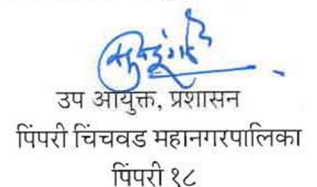 उप आयुक्त, प्रशासन
पिंपरी चिंचवड महानगरपालिका
पिंपरी १८